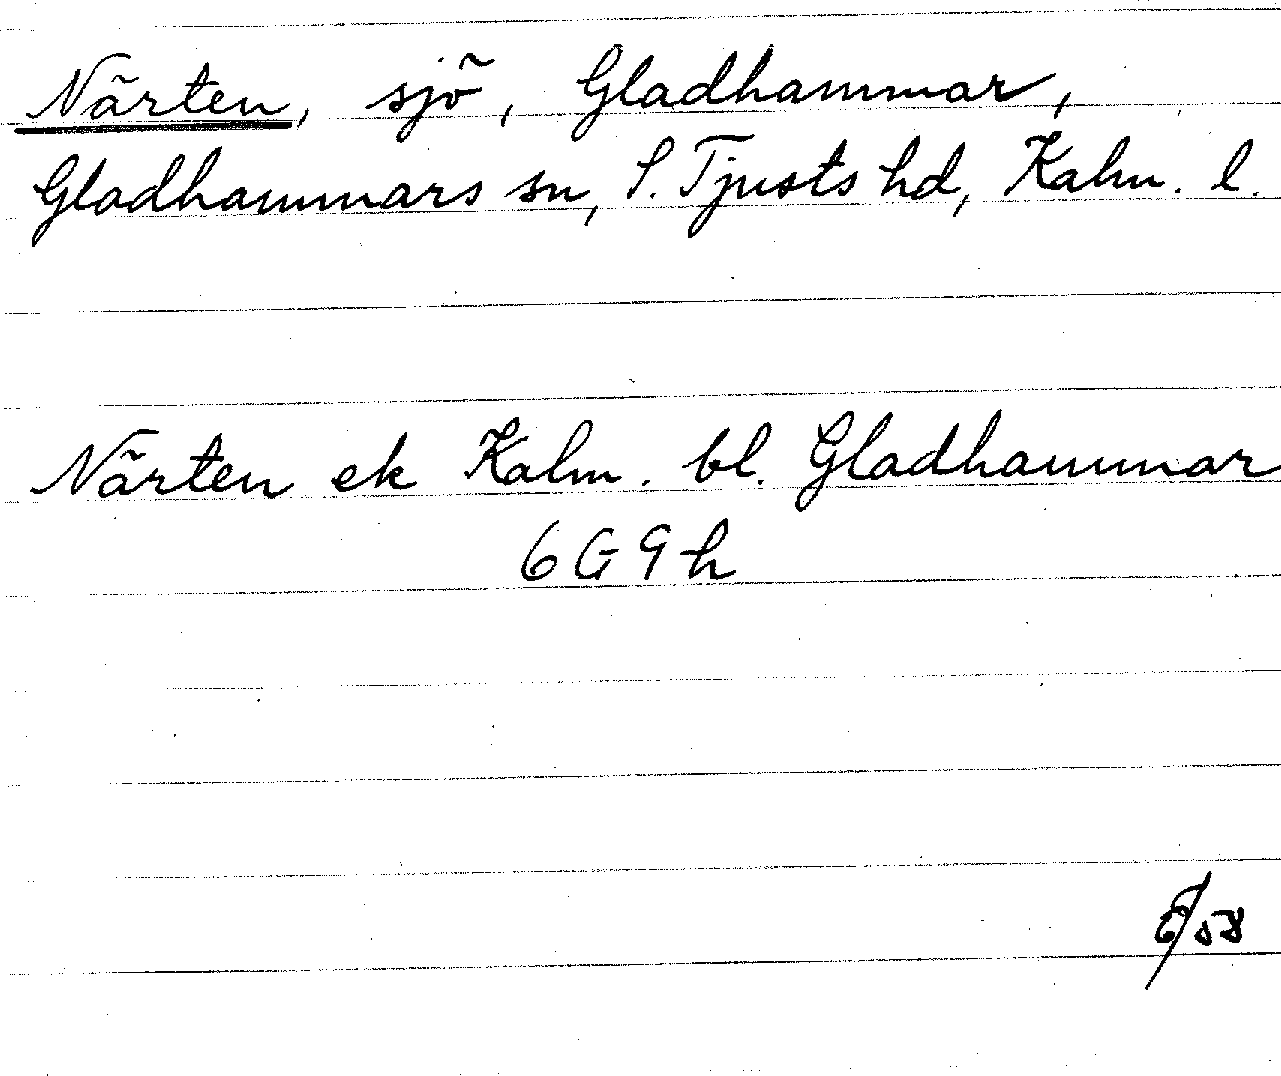 Närten, sjö, Gladhammar,
Gladhammars sn, S. Tjusts hd, Kalm. l.
Närten ek Kalm. bl. Gladhammar
6G9h